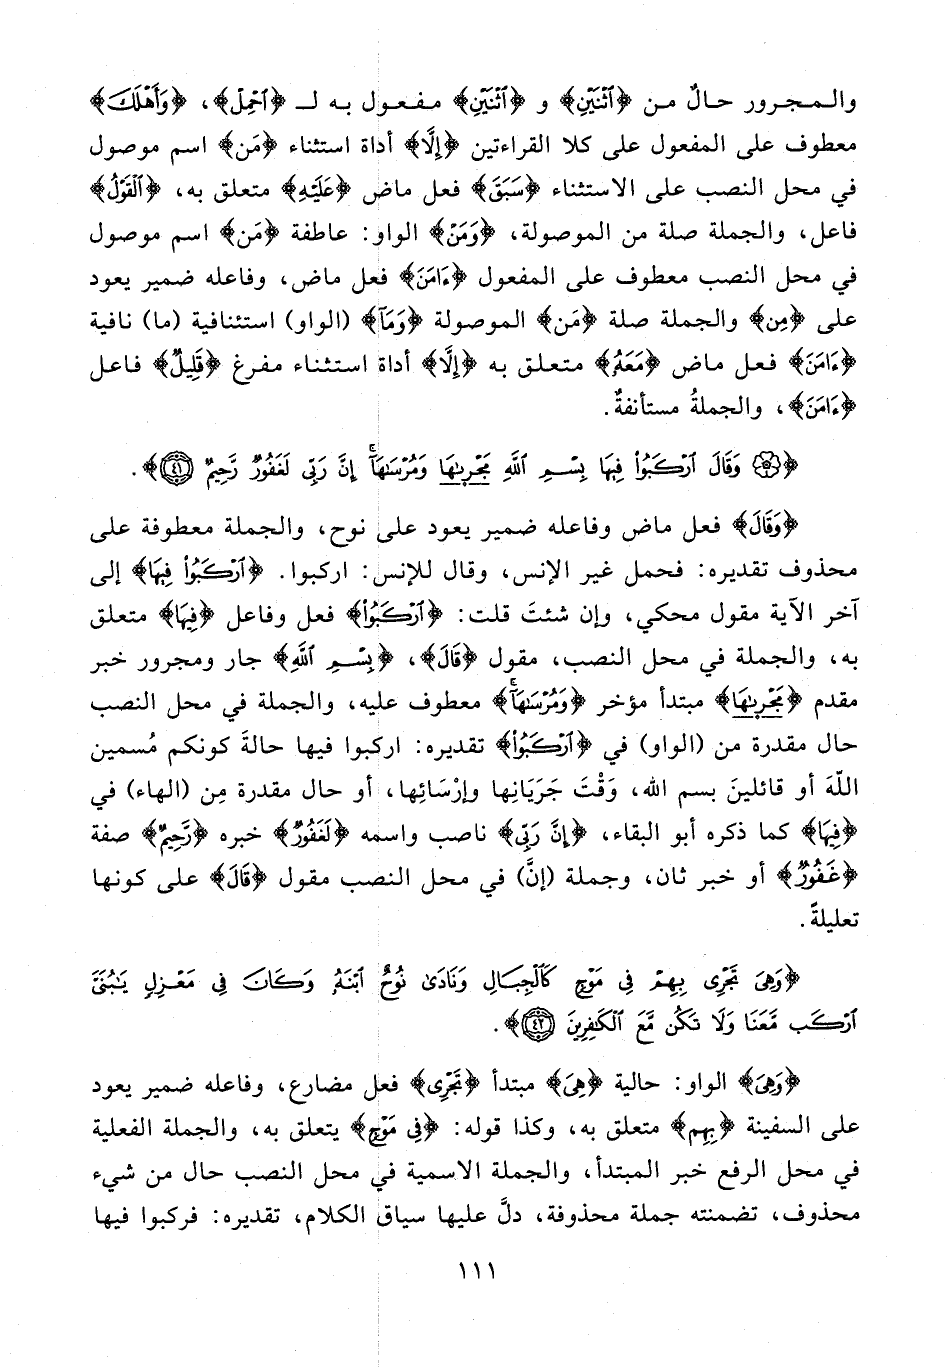 والمجرور حالٌ من ﴿ٱثْنَيْنِ﴾ و ﴿ٱثْنَيْنِ﴾ مفعول به لـ ﴿ٱحْمِلْ﴾، ﴿وَأَهْلَكَ﴾
معطوف على المفعول على كلا القراءتين ﴿إِلَّا﴾ أداة استثناء ﴿مَن﴾ اسم موصول
في محل النصب على الاستثناء ﴿سَبَقَ﴾ فعل ماض ﴿عَلَيْهِ﴾ متعلق به، ﴿ٱلْقَوْلُ﴾
فاعل، والجملة صلة من الموصولة، ﴿وَمَنْ﴾ الواو: عاطفة ﴿مَن﴾ اسم موصول
في محل النصب معطوف على المفعول ﴿ءَامَنَ﴾ فعل ماض، وفاعله ضمير يعود
على ﴿مِن﴾ والجملة صلة ﴿مَن﴾ الموصولة ﴿وَمَآ﴾ (الواو) استئنافية (ما) نافية
﴿ءَامَنَ﴾ فعل ماض ﴿مَعَهُۥ﴾ متعلق به ﴿إِلَّا﴾ أداة استثناء مفرغ ﴿قَلِيلٌ﴾ فاعل
﴿ءَامَنَ﴾، والجملةُ مستأنفةٌ.
﴿۞ وَقَالَ ٱرْكَبُوا۟ فِيهَا بِسْمِ ٱللَّهِ مَجْر۪ىٰهَا وَمُرْسَىٰهَآ ۚ إِنَّ رَبِّى لَغَفُورٌ رَّحِيمٌ ٤١﴾.
﴿وَقَالَ﴾ فعل ماض وفاعله ضمير يعود على نوح، والجملة معطوفة على
محذوف تقديره: فحمل غير الإنس، وقال للإنس: اركبوا. ﴿ٱرْكَبُوا۟ فِيهَا﴾ إلى
آخر الآية مقول محكي، وإن شئتَ قلت: ﴿ٱرْكَبُوا۟﴾ فعل وفاعل ﴿فِيهَا﴾ متعلق
به، والجملة في محل النصب، مقول ﴿قَالَ﴾، ﴿بِسْمِ ٱللَّهِ﴾ جار ومجرور خبر
مقدم ﴿مَجْر۪ىٰهَا﴾ مبتدأ مؤخر ﴿وَمُرْسَىٰهَآ ۚ﴾ معطوف عليه، والجملة في محل النصب
حال مقدرة من (الواو) في ﴿ٱرْكَبُوا۟﴾ تقديره: اركبوا فيها حالةَ كونكم مُسمين
اللّهَ أو قائلينَ بسم الله، وَقْتَ جَرَيَانِها وإرْسَائِها، أو حال مقدرة مِن (الهاء) في
﴿فِيهَا﴾ كما ذكره أبو البقاء، ﴿إِنَّ رَبِّى﴾ ناصب واسمه ﴿لَغَفُورٌ﴾ خبره ﴿رَّحِيمٌ﴾ صفة
﴿غَفُورٌ﴾ أو خبر ثان، وجملة (إنَّ) في محل النصب مقول ﴿قَالَ﴾ على كونها
تعليلةً.
﴿وَهِىَ تَجْرِى بِهِمْ فِى مَوْجٍ كَٱلْجِبَالِ وَنَادَىٰ نُوحٌ ٱبْنَهُۥ وَكَانَ فِى مَعْزِلٍ يَٰبُنَىَّ
ٱرْكَب مَّعَنَا وَلَا تَكُن مَّعَ ٱلْكَٰفِرِينَ ٤٢﴾.
﴿وَهِىَ﴾ الواو: حالية ﴿هِىَ﴾ مبتدأ ﴿تَجْرِى﴾ فعل مضارع، وفاعله ضمير يعود
على السفينة ﴿بِهِم﴾ متعلق به، وكذا قوله: ﴿فِى مَوْجٍ﴾ يتعلق به، والجملة الفعلية
في محل الرفع خبر المبتدأ، والجملة الاسمية في محل النصب حال من شيء
محذوف، تضمنته جملة محذوفة، دلَّ عليها سياق الكلام، تقديره: فركبوا فيها
١١١